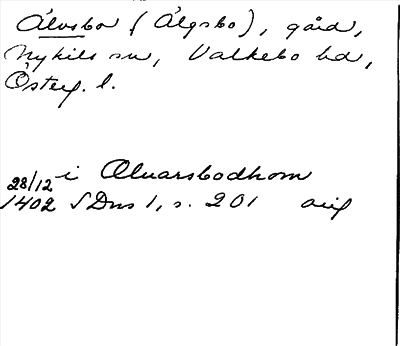 Älvsbo (Älgsbo), gård,
Nykils sn, Valkebo hd,
Österg. l.
28/12 i Aluarsbodhom
1402 SDns 1, s. 201 orig